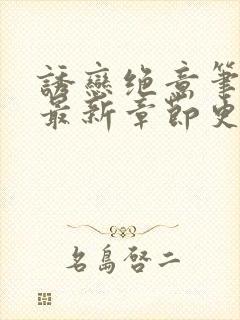 誘戀绝意筆
最新章節史
名島啓二